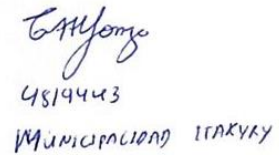 4819443
MUNICIPALIDAD ITAKYRY